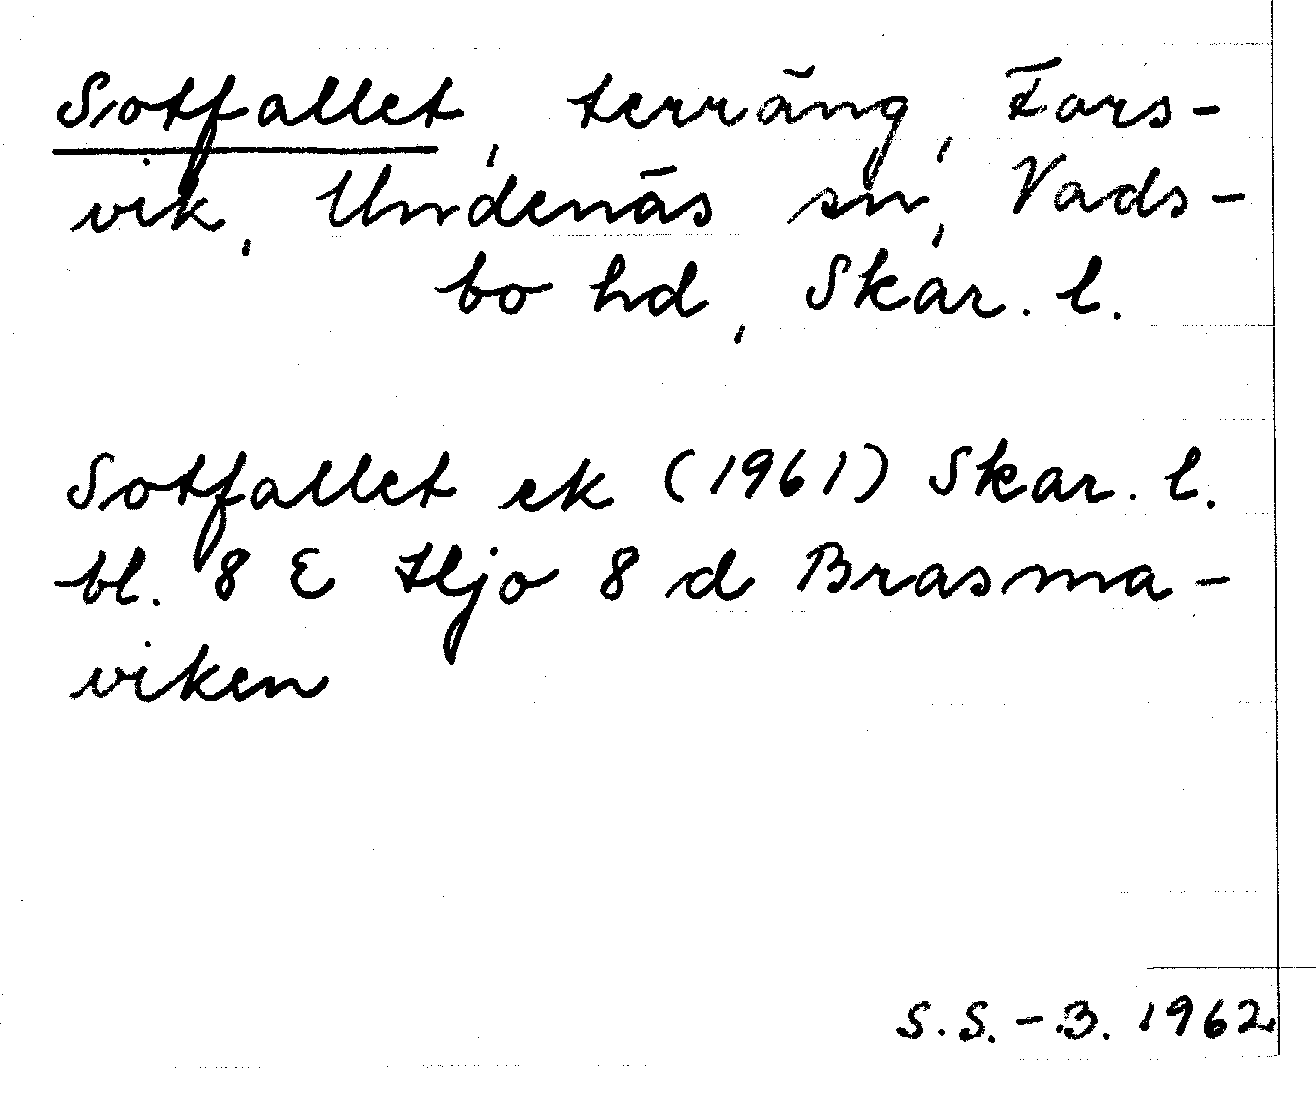 Sotfallet, terräng, Fors-
vik, Undenäs sn, Vads-
bo hd, Skar. l.
Sotfallet ek (1961) Skar. l.
bl. 8 E Hjo 8 d Brasma-
viken
S.S.-B. 1962